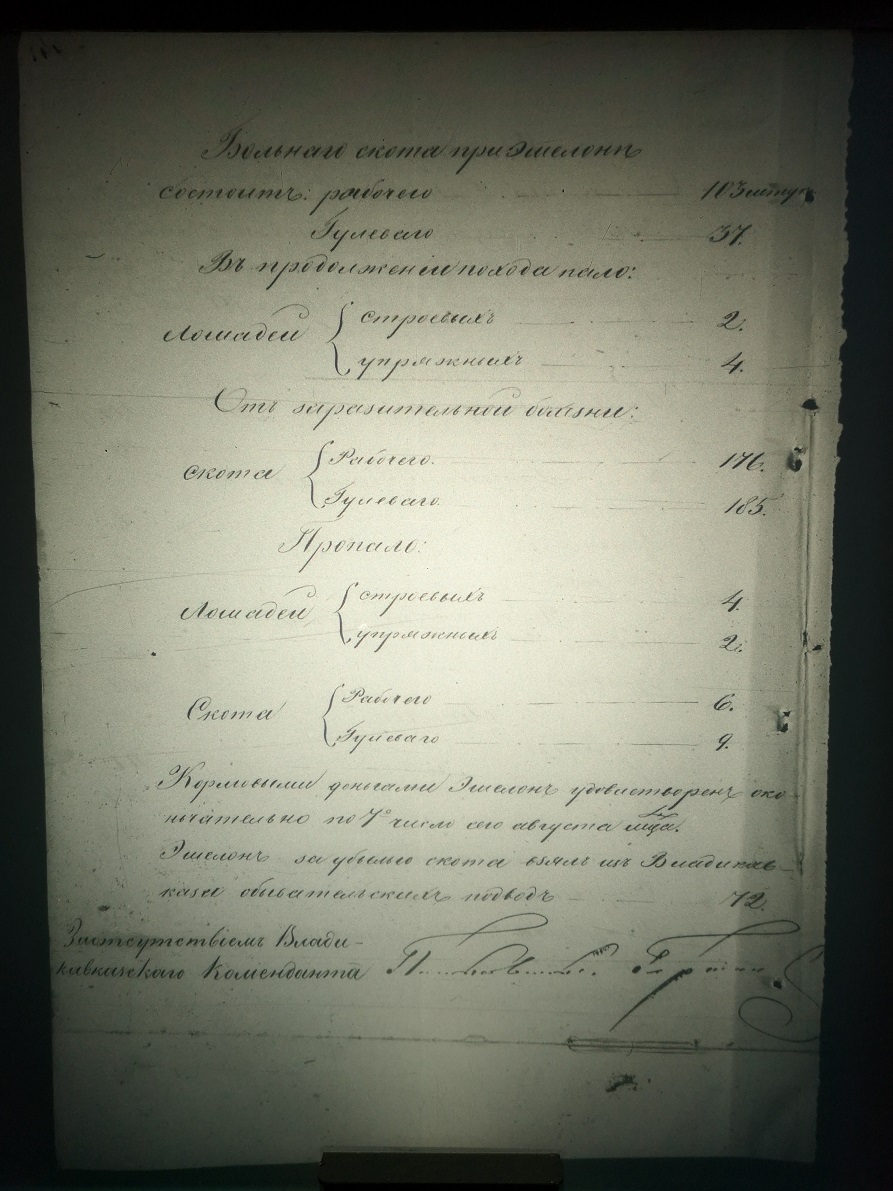 Больнаго скота при эшелонѣ
состоитъ: рабочаго 103 штук
Гулеваго 37.
Въ продолженіи похода пало:
Лошадей { строевыхъ 2.
упряжныхъ 4.
Отъ заразительной болѣзни:
скота { Рабочего 176.
Гулеваго 185.
Пропало:
Лошадей { строевыхъ 4.
упряжныхъ 2.
Скота { Рабочего 6.
Гулеваго 9.
Кормовыми деньгами Эшелонъ удовлетворенъ око-
нчательно по 7е число сего августа мѣца.
Эшелонъ за убылью скота взялъ изъ Владикав-
каза обывательскихъ подводъ 72.
За отсутствіемъ Влади-
кавказскаго Коменданта